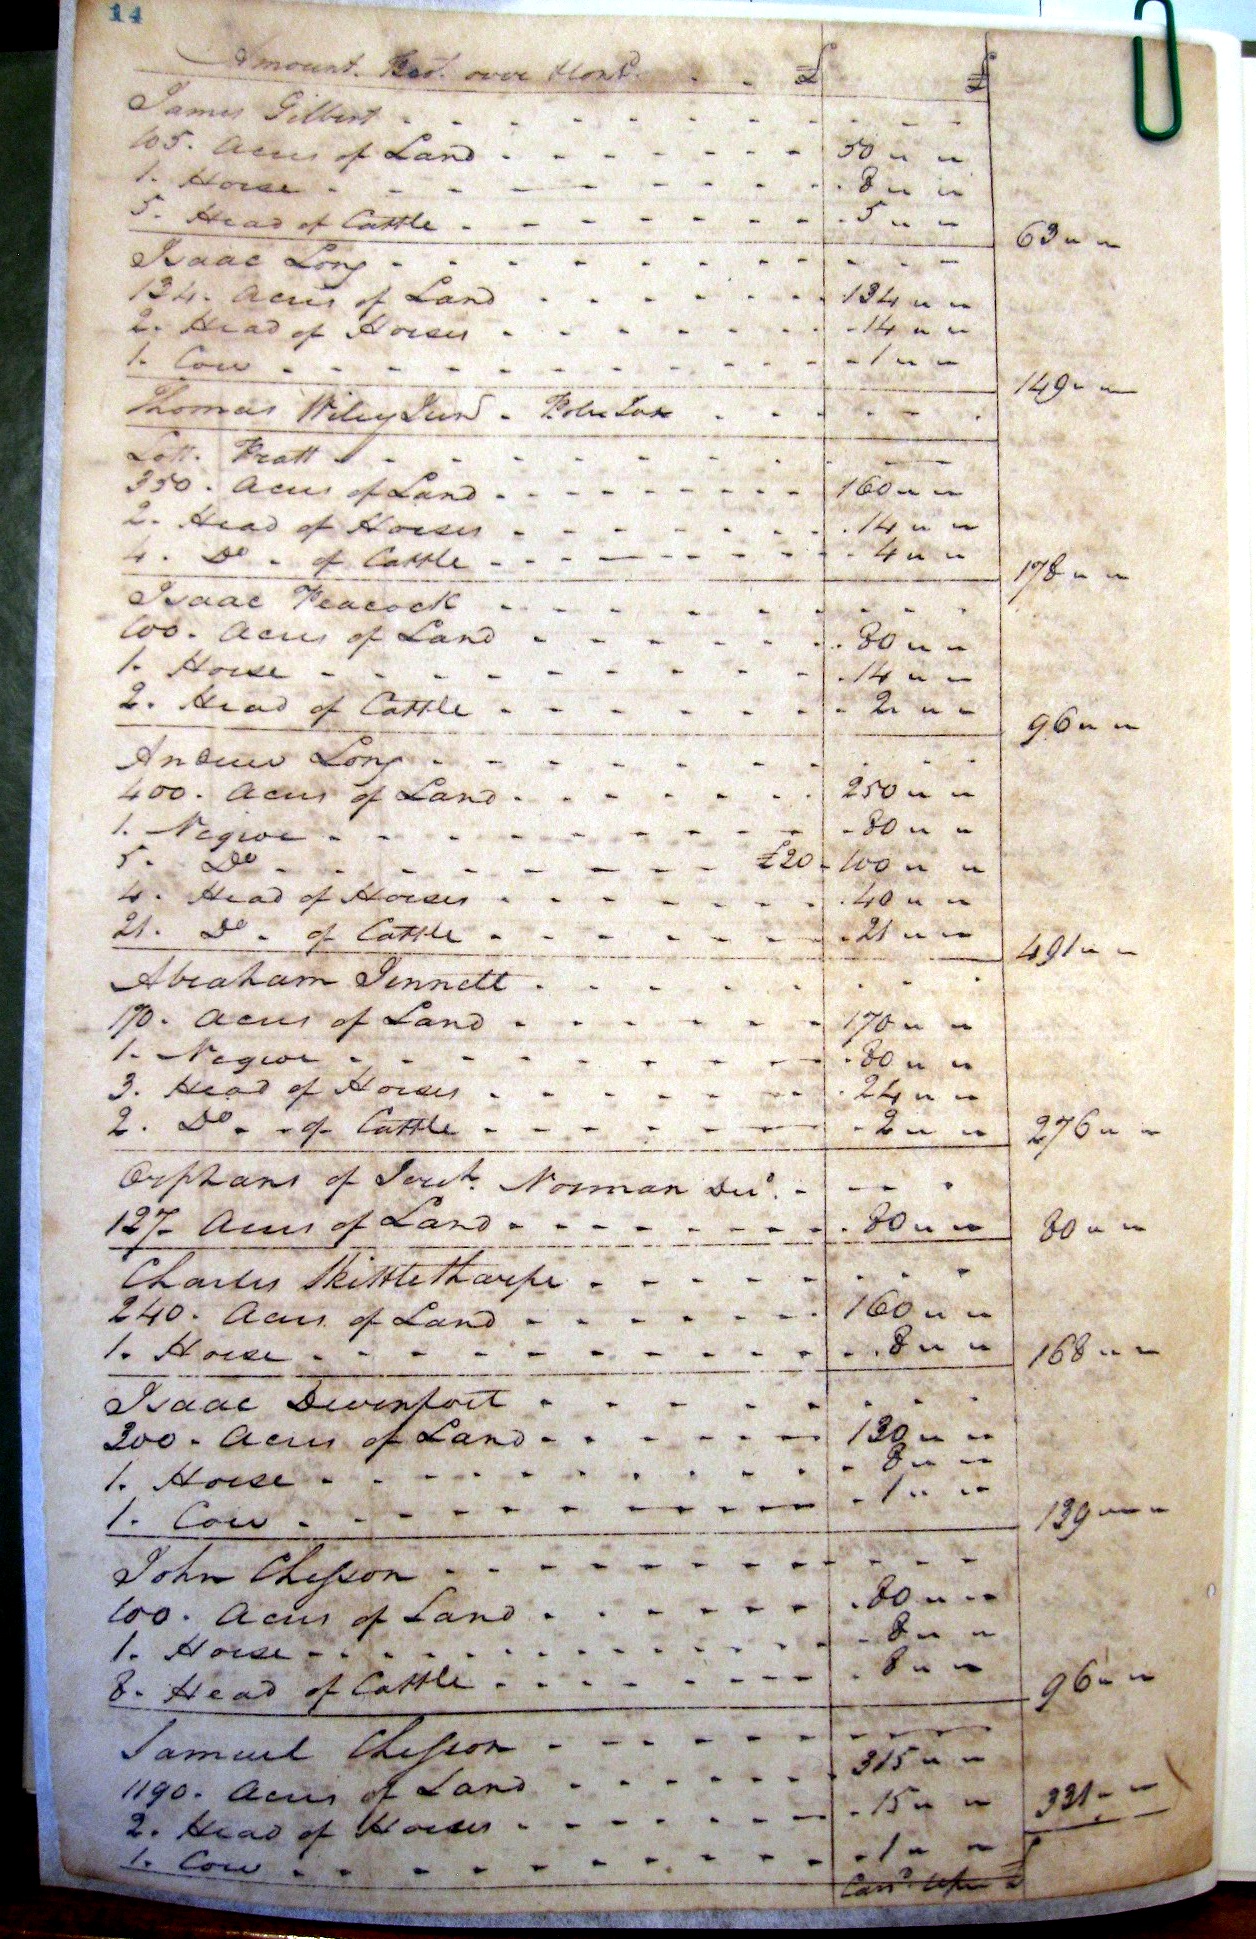 14
Amount Brot. over Hond. £ £
James Gilbert
105. Acres of Land 50 " "
1. Horse 8 " "
5. Head of Cattle 5 " "
63 " "
Isaac Long
134. Acres of Land 134 " "
2. Head of Horses 14 " "
1. Cow 1 " "
149 " "
Thomas Wiley Junr. Pole Tax
Lott. Pratt
350. Acres of Land 160 " "
2. Head of Horses 14 " "
4. Do. of Cattle 4 " "
178 " "
Isaac Peacock
100. Acres of Land 80 " "
1. Horse 14 " "
2. Head of Cattle 2 " "
96 " "
Andrew Long
400. Acres of Land 250 " "
1. Negroe 80 " "
5. Do £20 100 " "
4. Head of Horses 40 " "
21. Do. of Cattle 21 " "
491 " "
Abraham Jennett
170. Acres of Land 170 " "
1. Negroe 80 " "
3. Head of Horses 24 " "
2. Do. of Cattle 2 " "
276 " "
Orphans of Norman Decd.
127 Acres of Land 80 " "
80 " "
Charles Skittletharpe
240. Acres of Land 160 " "
1. Horse 8 " "
168 " "
Isaac Devenport
300. Acres of Land 130 " "
1. Horse 8 " "
1. Cow 1 " "
139 " "
John Chesson
100. Acres of Land 80 " "
1. Horse 8 " "
8. Head of Cattle 8 " "
96 " "
Samuel Chesson
1190. Acres of Land 315 " "
2. Head of Horses 15 " "
1. Cow 1 " "
331 " "
Carrd. Up £